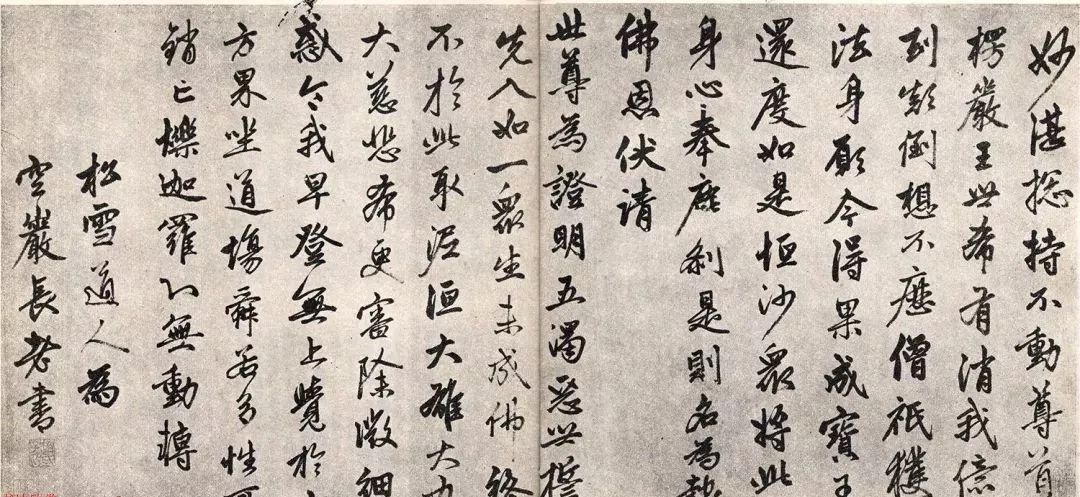 妙湛摠持不動尊首
楞嚴王世希有消我億
到顛倒想不歷僧祇獲
法身願今得果成寶王
還度如是恒沙衆將此
身心奉塵刹是則名為報
佛恩伏請
世尊為證明五濁惡世誓
先入如一衆生未成佛終
不於此取泥洹大雄大力
大慈悲希更審除微細
惑令我早登無上覺於
方界坐道場舜若多性可
銷亡爍迦羅心無動轉
松雪道人為
空巖長老書